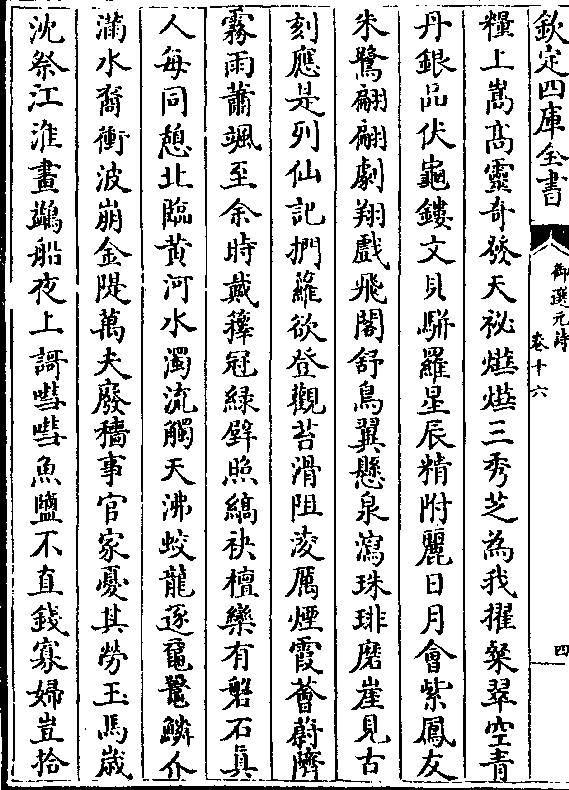 欽定四庫全書
御選元詩
卷十六
四
糧上嵩高靈奇發天祕爗爗三秀芝為我擢粲翠空青
丹銀品伏龜鏤文貝駢羅星辰精附麗日月會紫鳳友
朱鷺翩翩劇翔戲飛閣舒鳥翼懸泉瀉珠琲磨崖見古
刻應是列仙記捫蘿欲登觀苔滑阻淩厲煙霞薈蔚隮
霧雨蕭颯至余時戴籜冠緑壁照縞袂檀欒有磐石真
人每同憩北臨黄河水濁流觸天沸蛟龍逐黿鼉鱗介
滿水裔衝波崩金隄萬夫廢穡事官家憂其勞玉馬歳
沈祭江淮畫鷁船夜上謌嘒嘒魚鹽不直錢寡婦豈拾